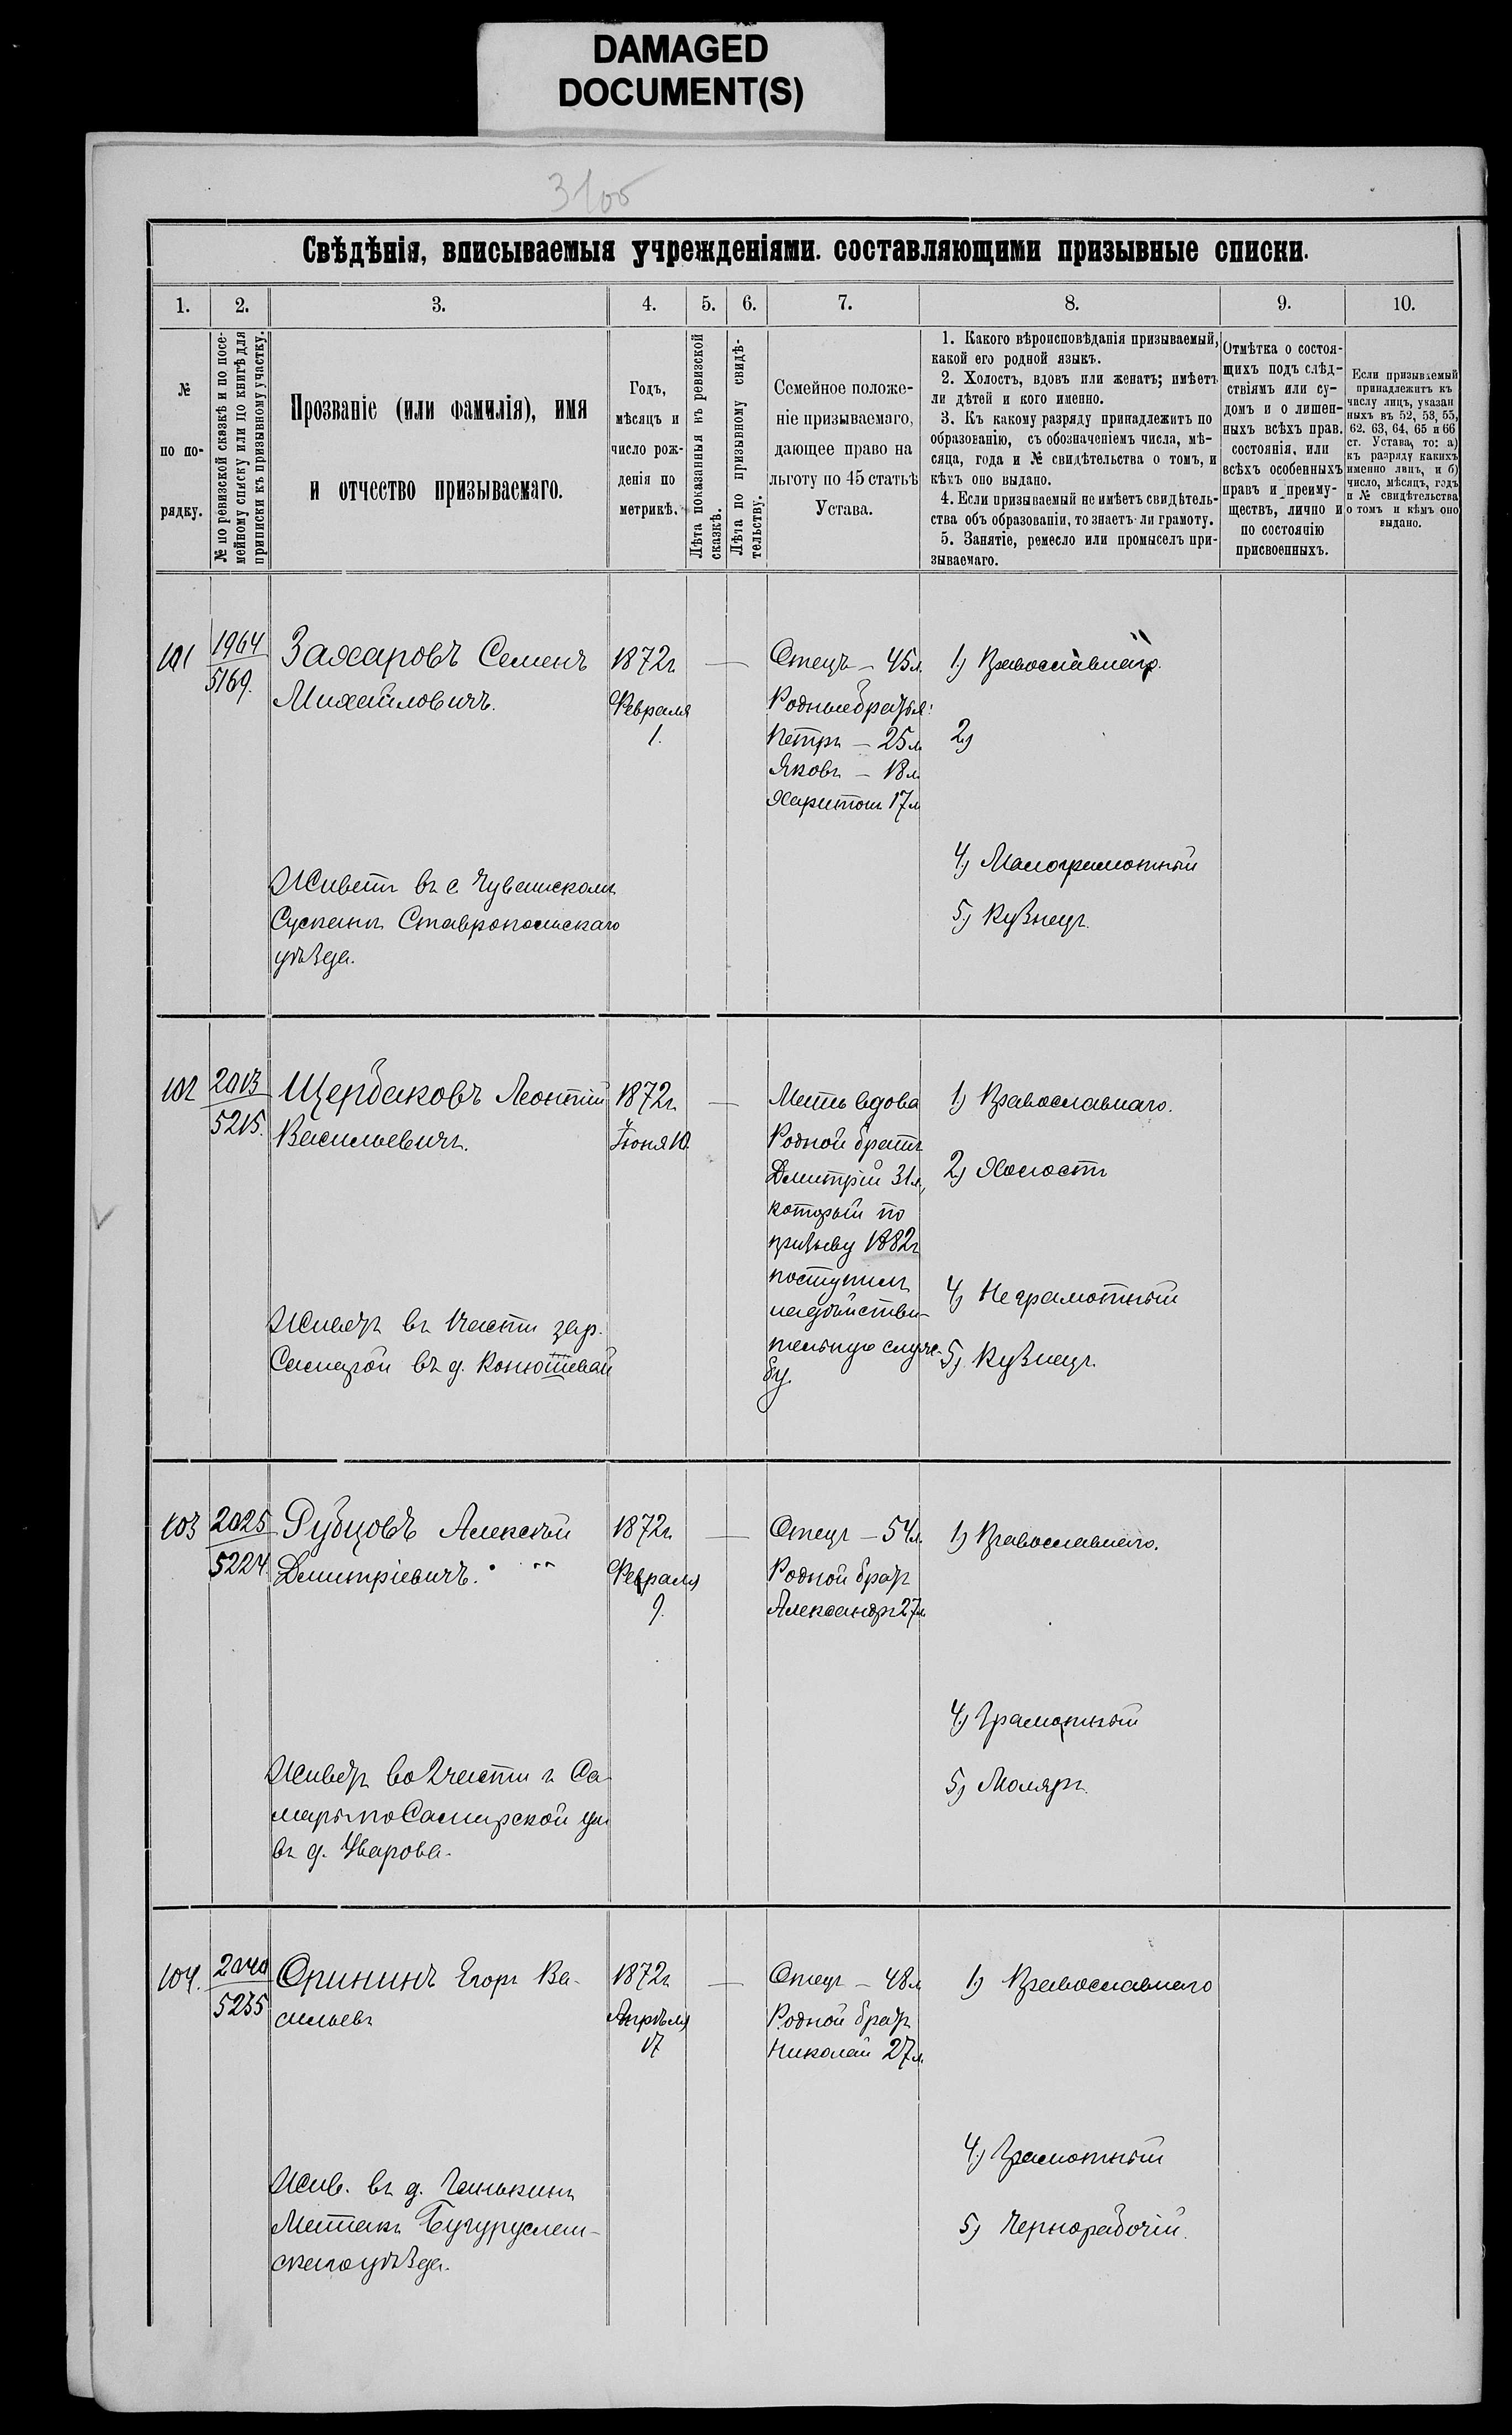 DAMAGED
DOCUMENT(S)
3100
Свѣдѣнія, вписываемыя учрежденіями. составляющими призывные списки.
1. 2. 3. 4. 5. 6. 7. 8. 9. 10.
№
по по-
рядку.
№ по ревизской сказкѣ и по посе-
мейному списку или по книгѣ для
приписки къ призывному участку.
Прозваніе (или фамилія), имя
и отчество призываемаго.
Годъ,
мѣсяцъ и
число рож-
денія по
метрикѣ.
Лѣта показанныя въ ревизской
сказкѣ.
Лѣта по призывному свидѣ-
тельству.
Семейное положе-
ніе призываемаго,
дающее право на
льготу по 45 статьѣ
Устава.
1. Какого вѣроисповѣданія призываемый,
какой его родной языкъ.
2. Холостъ, вдовъ или женатъ; имѣетъ
ли дѣтей и кого именно.
3. Къ какому разряду принадлежитъ по
образованію, съ обозначеніемъ числа, мѣ-
сяца, года и № свидѣтельства о томъ, и
кѣмъ оно выдано.
4. Если призываемый не имѣетъ свидѣтель-
ства объ образованіи, то знаетъ-ли грамоту.
5. Занятіе, ремесло или промыселъ при-
зываемаго.
Отмѣтка о состоя-
щихъ подъ слѣд-
ствіямъ или су-
домъ и о лишен-
ныхъ всѣхъ прав.
состоянія, или
всѣхъ особенныхъ
правъ и преиму-
ществъ, лично и
по состоянію
присвоенныхъ.
Если призываемый
принадлежитъ къ
числу лицъ, указан
ныхъ въ 52, 53, 55,
62. 63, 64, 65 и 66
ст. Устава, то: а)
къ разряду какихъ
именно лицъ, и б)
число, мѣсяцъ, годъ
и № свидѣтельства
о томъ и кѣмъ оно
выдано.
101
1964
5169.
Захаровъ Семенъ
Михайловичъ.
Живетъ въ с. Чувашскомъ
Сускане Ставропольскаго
уѣзда.
1872г.
Февраля
1.
Отецъ – 45л.
Родные братья:
Петръ – 25л
Яковъ – 18л
Харитонъ 17л
1.) Православнаго.
2.)
4.) Малограмотный
5.) Кузнецъ.
102
2013
5215.
Щербаковъ Леонтій
Васильевичъ.
Живетъ въ 1 части гор.
Самарой въ д. Конюшевой
1872г.
Іюня 10.
Мать вдова
Родной братъ
Дмитрій 31л,
который по
призыву 1882г
поступилъ
надѣйстви-
тельную служ-
бу.
1.) Православнаго.
2.) Холостъ
4.) Неграмотный
5.) Кузнецъ.
103
2025
5224.
Рубцовъ Алексѣй
Дмитріевичъ.
Живетъ во 2 части г. Са-
мары по Самарской ул
въ д. Уварова.
1872г.
Февраля
9.
Отецъ – 54л.
Родной братъ
Александръ 27л
1.) Православнаго.
4.) Грамотный
5.) Моляръ.
104.
2040
5235
Слининъ Егоръ Ва-
сильевъ
Жив. въ д.
Бугуруслан-
скаго уѣзда.
1872г.
Апрѣля
17
Отецъ – 48л
Родной братъ
Николай 27л.
1.) Православнаго
4.) Грамотный
5.) Чернорабочій.